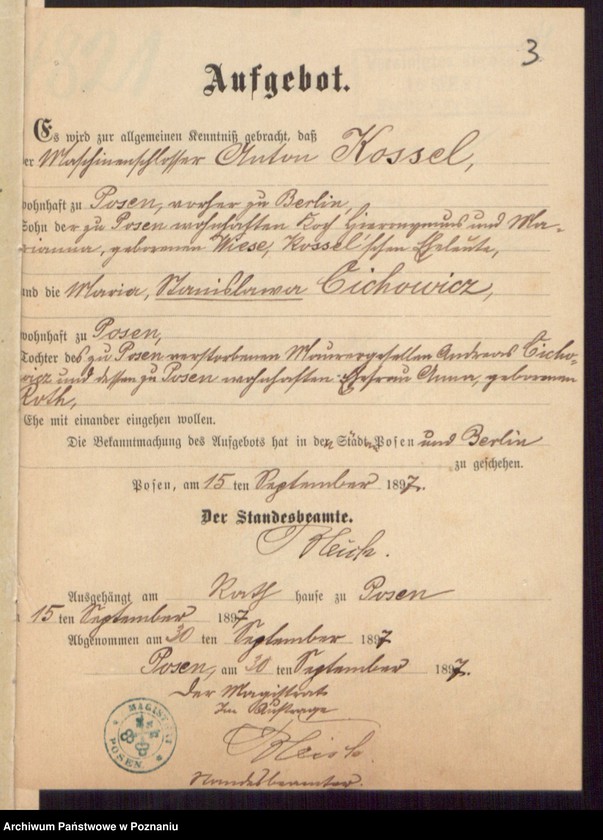 3
Aufgebot.
Es wird zur allgemeinen Kenntniß gebracht, daß
er Maschinenschlosser Anton Kossel,
wohnhaft zu Posen, vorher zu Berlin,
Sohn der zu Posen wohnhaften Koch Hieronymus und Ma-
rianna, geborenen Wiese, Kossel'schen Eheleute,
und die Maria, Stanislawa Cichowicz,
wohnhaft zu Posen,
Tochter des zu Posen verstorbenen Maurergesellen Andreas Cicho-
wicz und dessen zu Posen wohnhaften Ehefrau Anna, geborenen
Roth,
Ehe mit einander eingehen wollen.
Die Bekanntmachung des Aufgebots hat in den Städten Posen und Berlin
zu geschehen.
Posen, am 15 ten September 1897.
Der Standesbeamte.
Ausgehängt am Rathhause zu Posen
15 ten September 1897
Abgenommen am 30 ten September 1897
Posen, am 30 ten September 1897.
Der Magistrat
Im Auftrage
Standesbeamter.
MAGISTRAT
POSEN
Archiwum Państwowe w Poznaniu